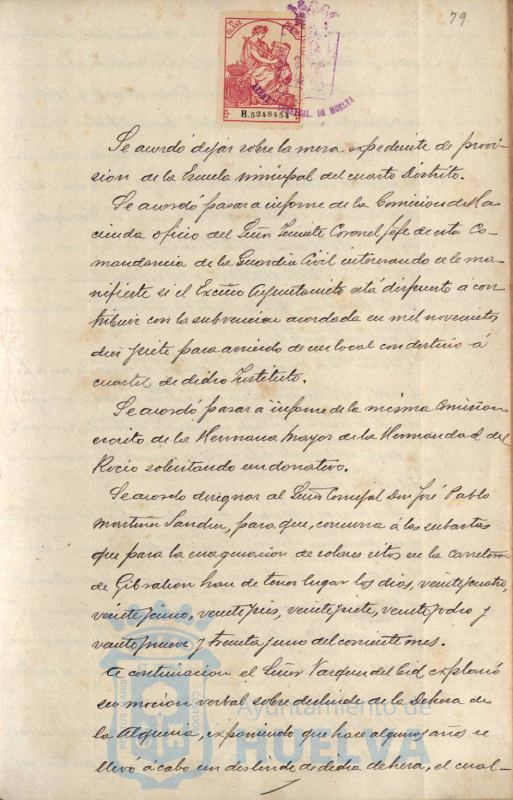 79
B.5248454
HUELVA
Se acordó dejar sobre la mesa expediente de provi-
sion de la Escuela municipal del cuarto Distrito.
Se acordó pasar a informe de la Comision de Ha-
cienda oficio del Señor Teniente Coronel Jefe de esta Co-
mandancia de la Guardia Civil interesando se le ma-
nifieste si el Excmo Ayuntamiento está dispuesto á con-
tribuir con la subvencion acordada en mil novecientos
diez y siete para arriendo de un local con destino á
cuartel de dicho Instituto.
Se acordó pasar a informe de la misma Comision
escrito de la Hermana mayor de la Hermandad del
Rocio solicitando un donativo.
Se acordo designar al Señor Concejal Don José Pablo
Martinez Sandez, para que, concurra á las subastas
que para la enagenacion de solares sitos en la carretera
de Gibraleon han de tener lugar los dias, veinte y cuatro,
veinte y cinco, veinte y seis, veinte y siete, veinte y ocho y
veinte y nueve y treinta y uno del corriente mes.
A continuacion el Señor Vazquez del Cid explanó
su mocion verbal sobre deslinde de la Dehesa de
la Alqueria, exponiendo que hace algunos años se
llevó á cabo un deslinde de dicha dehesa, el cual
Ayuntamiento de
HUELVA